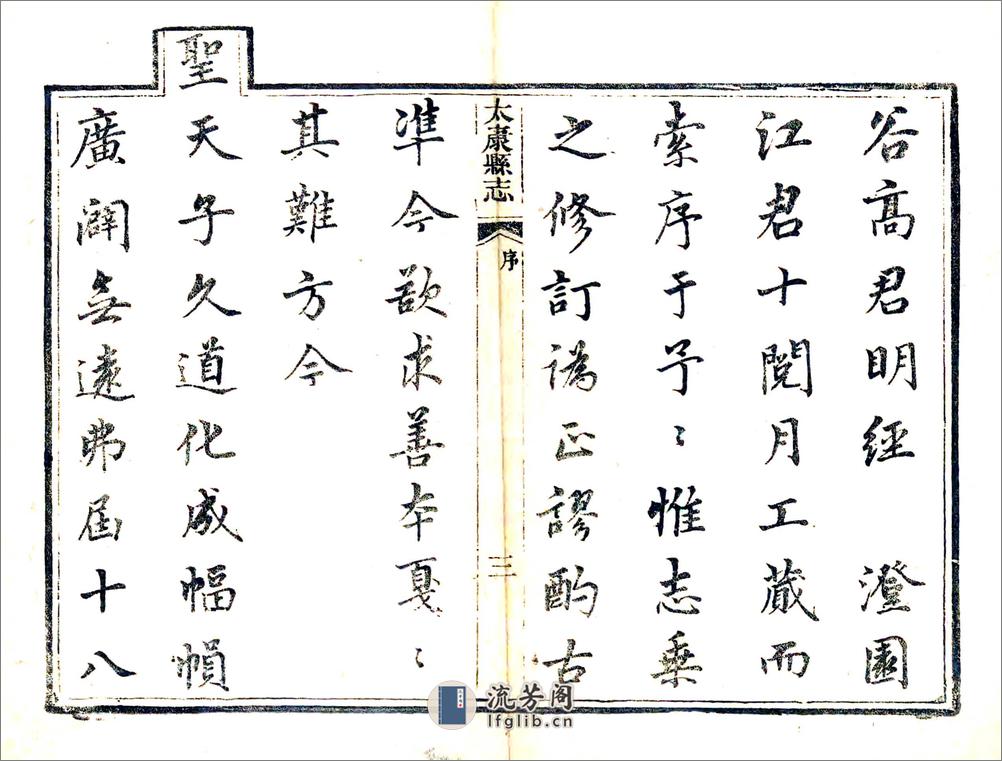 谷高君明經 澄園
江君十閱月工蕆而
索序于予〻惟志乗
之修訂譌正謬酌古
太康縣志 序 三
準今欲求善本戛〻
其難方今
聖
天子久道化成幅幀
廣闢無遠弗屆十八
流芳阁
lfglib.cn